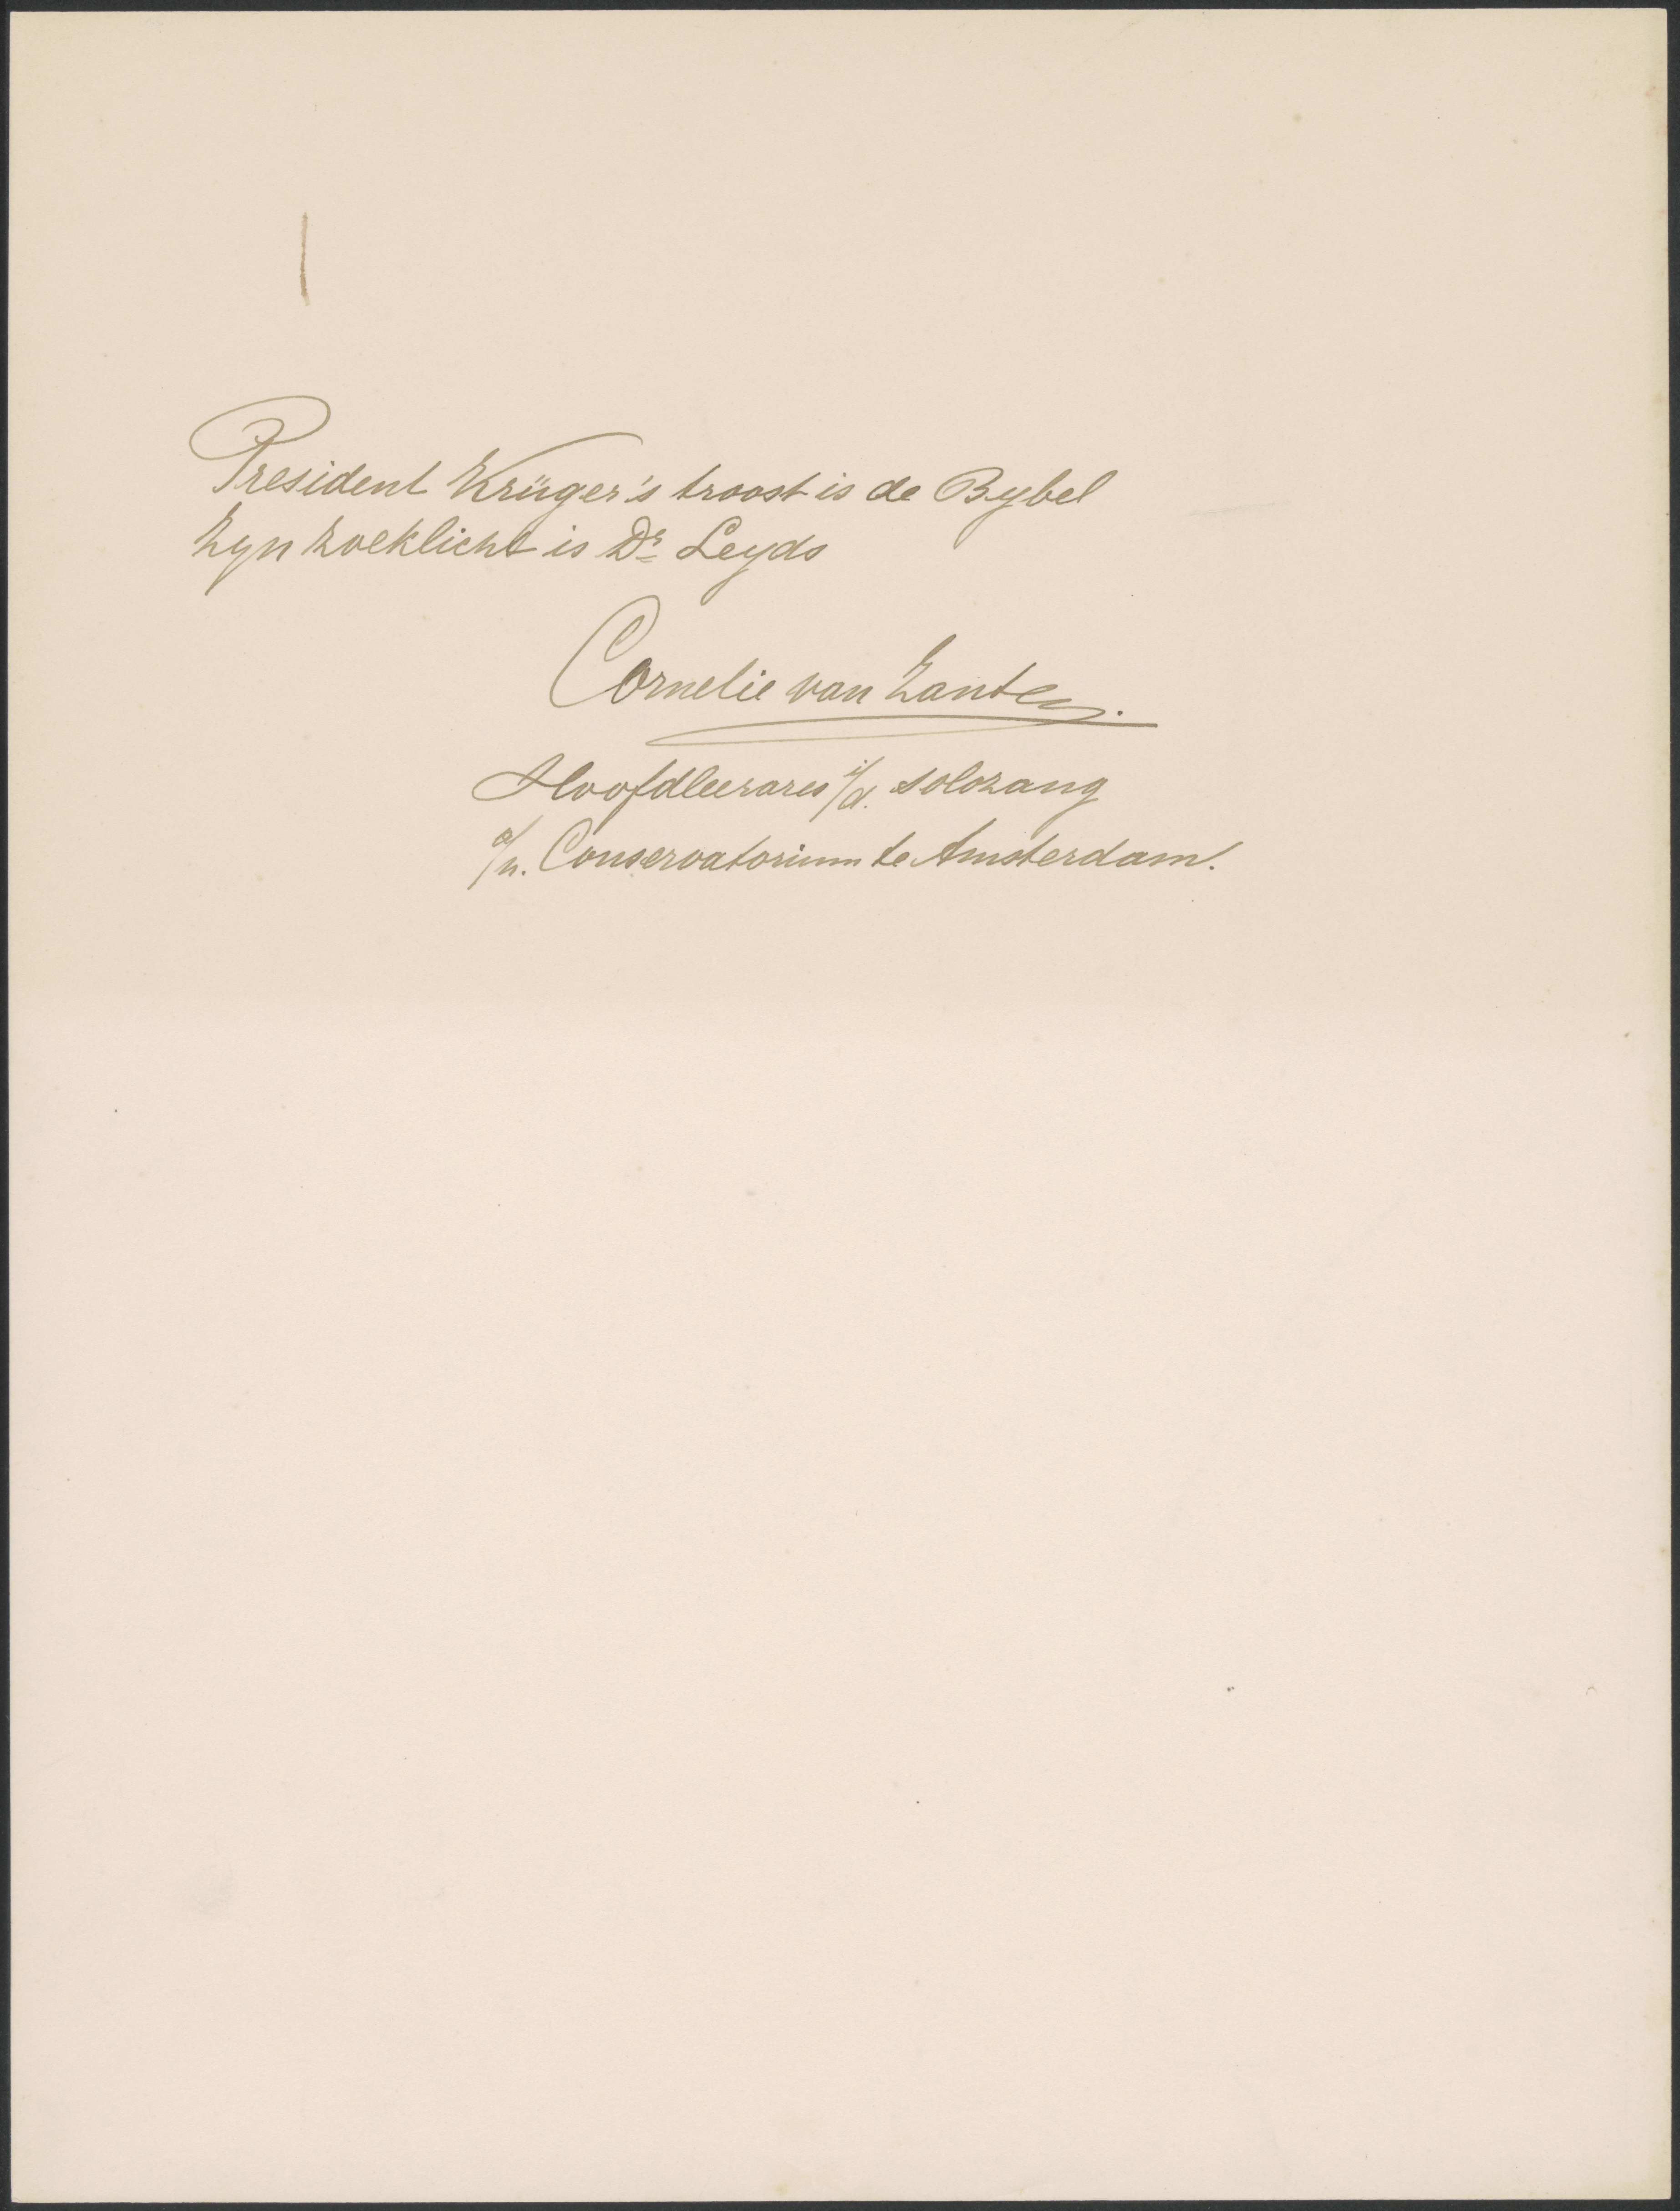 President Krüger's troost is de Bybel
Zyn zoeklicht is Dr Leyds
Cornelie van Zanten.
Hoofdleerares i/d. solozang
a/h. Conservatorium te Amsterdam.